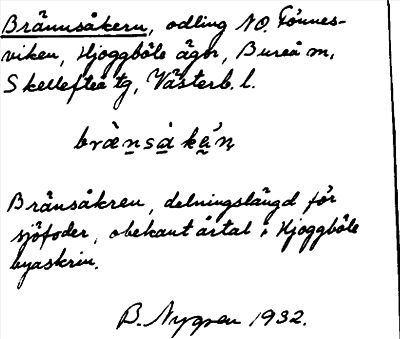 Brännsåkern, odling NO. Tönnes-
viken, Hjoggböle ägor, Bureå sn,
Skellefteå tg, Västerb. l.
brä̀n̲så̲ kǽ̲n̥
Bränsåkren, delningslängd för
sjöfoder, obekant årtal i Hjoggböle
byaskrin.
B. Nygren 1932.